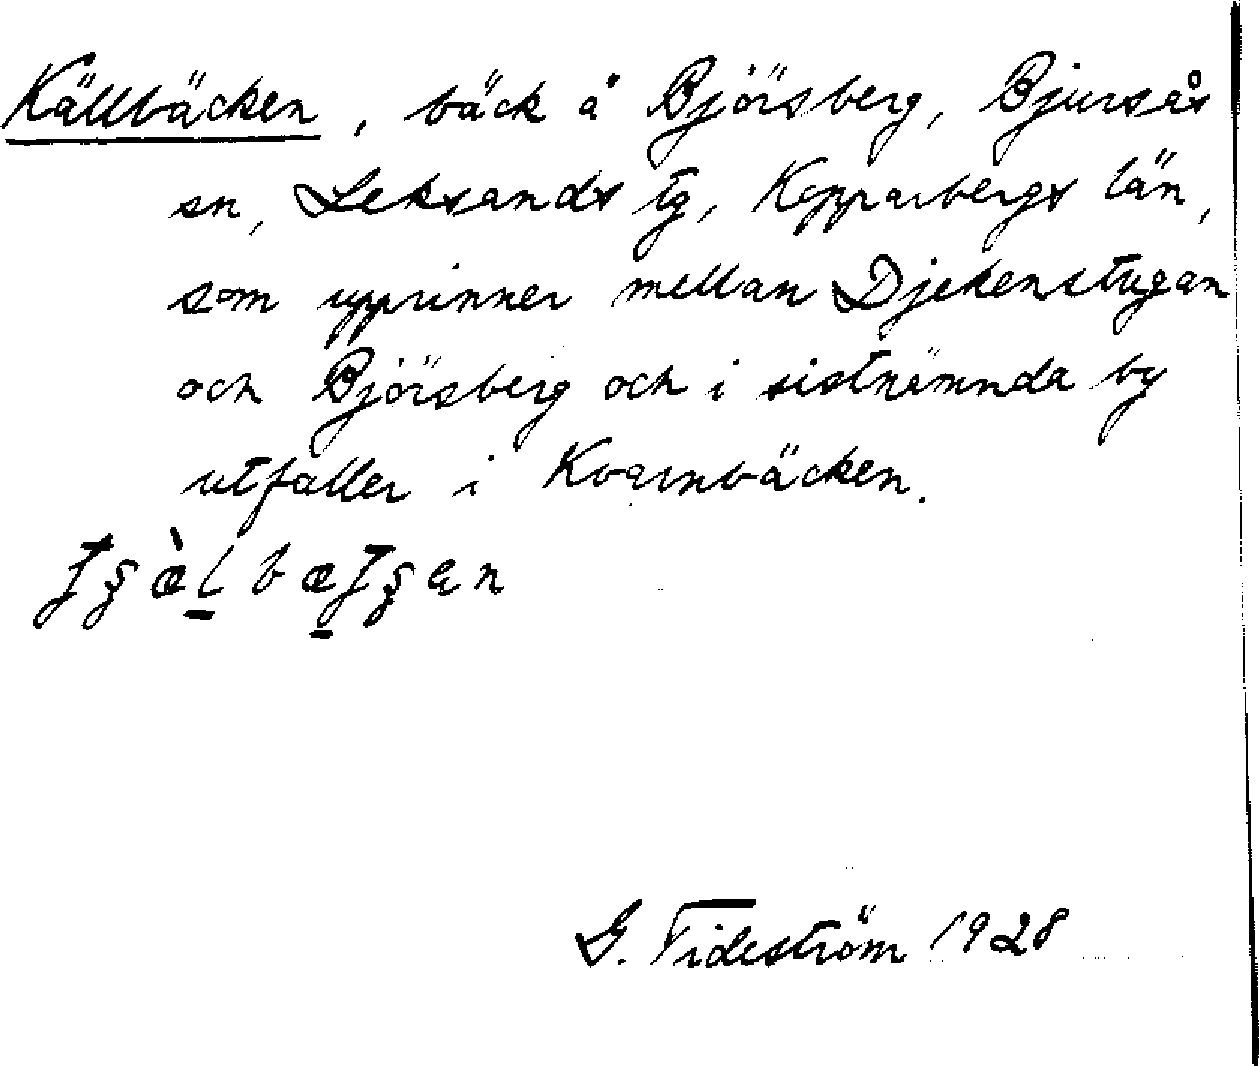 Källbäcken, bäck å Björsberg, Bjursås
sn, Leksands tg, Kopparbergs län,
som upprinner mellan Djekenstugan
och Björsberg och i sistnämnda by
utfaller i Kvarnbäcken.
G. Tideström 1928